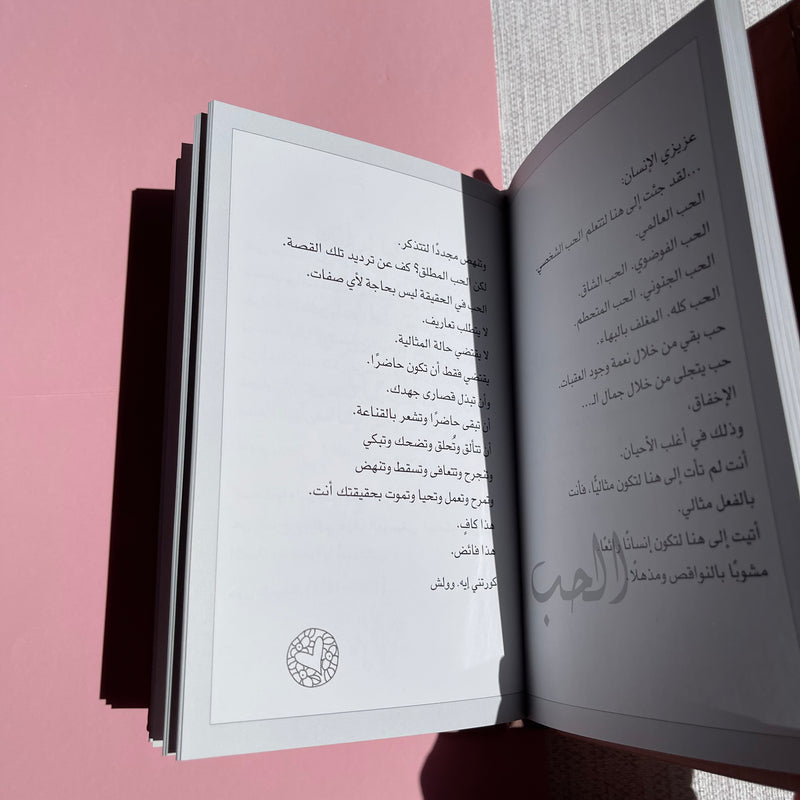 عزيزي الإنسان:
...لقد جئت إلى هنا لتتعلم الحب الشخصي
الحب العالمي.
الحب الفوضوي. الحب الشاق.
الحب الجنوني. الحب المتحطم.
الحب كله. المغلف بالبهاء.
حب بقي من خلال نعمة وجود العقبات.
حب يتجلى من خلال جمال الـ...
الإخفاق،
وذلك في أغلب الأحيان.
أنت لم تأت إلى هنا لتكون مثاليًا. فأنت
بالفعل مثالي.
أتيت إلى هنا لتكون إنسانًا رائعًا
مشوبًا بالنواقص ومذهلًا.
الحب
وتنهض مجددًا لتتذكر.
لكن الحب المطلق؟ كف عن ترديد تلك القصة.
الحب في الحقيقة ليس بحاجة لأي صفات.
لا يتطلب تعاريف.
لا يقتضي حالة المثالية.
يقتضي فقط أن تكون حاضرًا.
وأن تبذل قصارى جهدك.
أن تبقى حاضرًا وتشعر بالقناعة.
أن تتألق وتُحلق وتضحك وتبكي
وتنجرح وتتعافى وتسقط وتنهض
وتمرح وتعمل وتحيا وتموت بحقيقتك أنت.
هذا كافٍ.
هذا فائض.
كورتني إيه. وولش